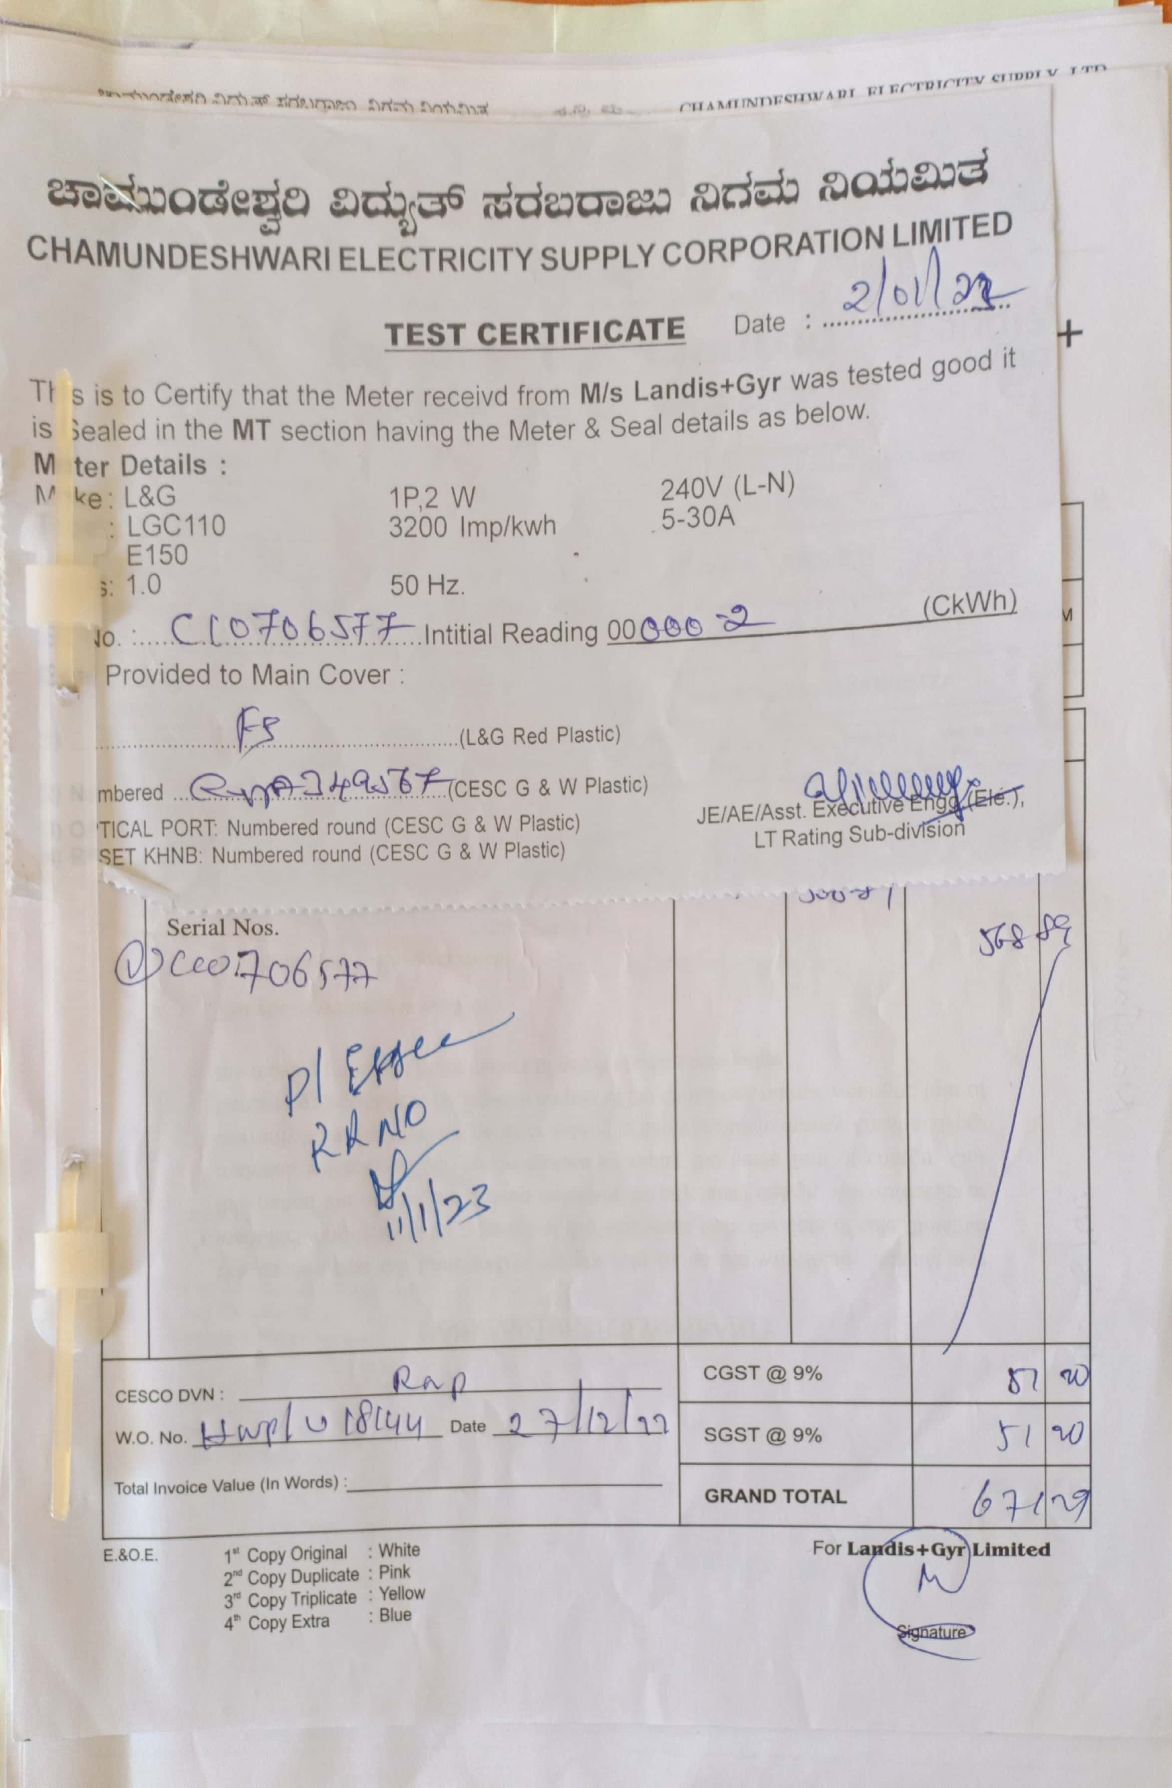 CHAMUNDESHWARI ELECTRICITY SUPPLY LTD
ಚಾಮುಂಡೇಶ್ವರಿ ವಿದ್ಯುತ್ ಸರಬರಾಜು ನಿಗಮ ನಿಯಮಿತ
CHAMUNDESHWARI ELECTRICITY SUPPLY CORPORATION LIMITED
TEST CERTIFICATE Date : 2/01/23
+
s is to Certify that the Meter receivd from M/s Landis+Gyr was tested good it
is Sealed in the MT section having the Meter & Seal details as below.
M ter Details :
ke : L&G 1P,2 W 240V (L-N)
: LGC110 3200 Imp/kwh 5-30A
E150
s: 1.0 50 Hz.
No. : C10706577 Intitial Reading 00000 2 (CkWh)
M
Provided to Main Cover :
(L&G Red Plastic)
mbered 349567 (CESC G & W Plastic)
JE/AE/Asst. Executive Engg (Ele.),
TICAL PORT: Numbered round (CESC G & W Plastic)
LT Rating Sub-division
SET KHNB: Numbered round (CESC G & W Plastic)
568 89
Serial Nos.
① CC0706577
Pl
RR NO
11/1/23
CESCO DVN : CGST @ 9% 51 20
W.O. No. 18144 Date 27/12/22 SGST @ 9% 51 20
Total Invoice Value (In Words) :
GRAND TOTAL 671 29
E.&O.E. 1st Copy Original : White
2nd Copy Duplicate : Pink
3rd Copy Triplicate : Yellow
4th Copy Extra : Blue
For Landis+Gyr Limited
Signature